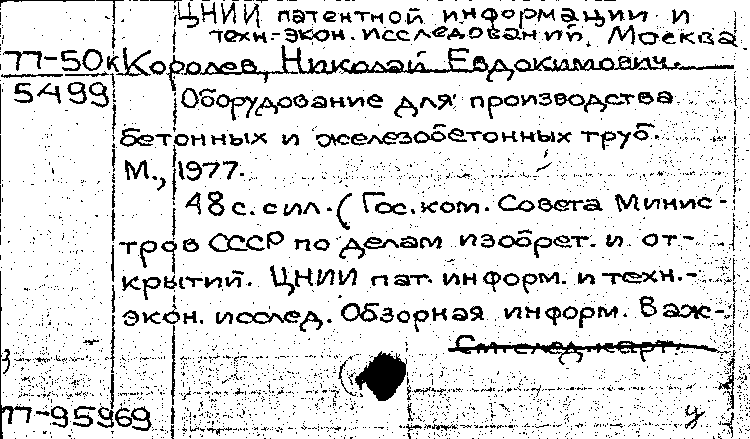 ЦНИИ патентной информации и
техн-экон. исследований, Москва
77-50к Королев, Николай Евдокимович.
5499 Оборудование для производства
бетонных и железобетонных труб.
М., 1977.
48 с. с ил. (Гос. ком. Совета Минис-
тров СССР по делам изобрет. и от-
крытий. ЦНИИ пат. информ. и техн.-
экон. исслед. Обзорная информ. Важ-
См. след. карт.
77-95969 у